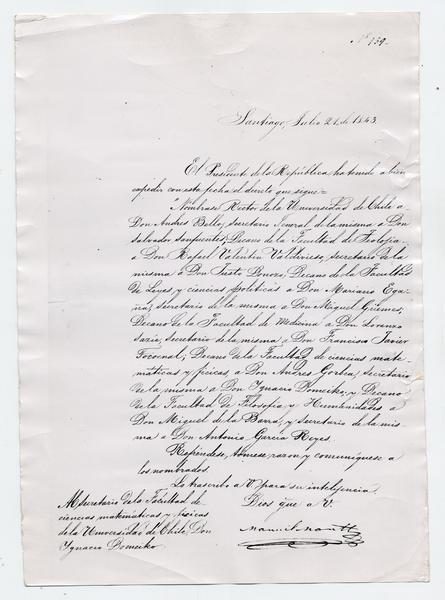 Nº 159.
Santiago, Julio 21 de 1843.
El Presidente de la República ha tenido a bien
expedir con esta fecha el decreto que sigue=
"Nómbrase Rector de la Universidad de Chile a
Don Andres Bello; Secretario Jeneral de la misma a Don
Salvador Sanfuentes; Decano de la Facultad de Teolojia
a Don Rafael Valentin Valdivieso, Secretario de la
misma a Don Justo Donoso, Decano de la Facultad
de Leyes y ciencias políticas a Don Mariano Ega-
ña; secretario de la misma a Don Miguel Güemes;
Decano de la Facultad de Medicina a Don Lorenzo
Sazie, Secretario de la misma a Don Francisco Javier
Tocornal; Decano de la Facultad de ciencias mate-
máticas y físicas a Don Andres Gorbea, Secretario
de la misma a Don Ygnacio Domeiko; y Decano
de la Facultad de Filosofia y Humanidades a
Don Miguel de la Barra, y Secretario de la mis
ma a Don Antonio Garcia Reyes.
Refréndese, tómese razon y comuníquese a
los nombrados.
Lo trascribo a V para su intelijencia.
Dios gue a V.
Al Secretario de la Facultad de
ciencias matemáticas y físicas
de la Universidad de Chile, Don
Ygnacio Domeiko
Manuel Montt